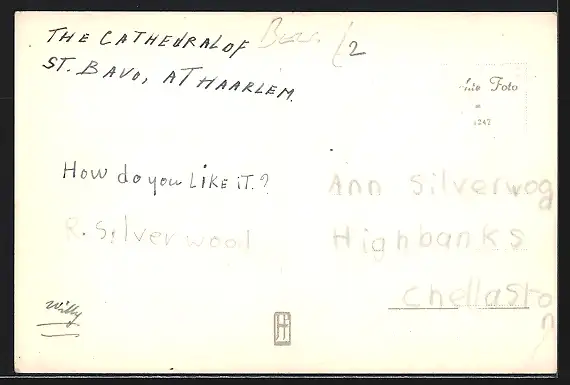 THE CATHEDRAL OF
ST. BAVO, AT HAARLEM.
2
Foto
1247
How do you LIKE iT.?
R. Silverwood
Willy
Ann Silverwood
Highbanks
Chellaston